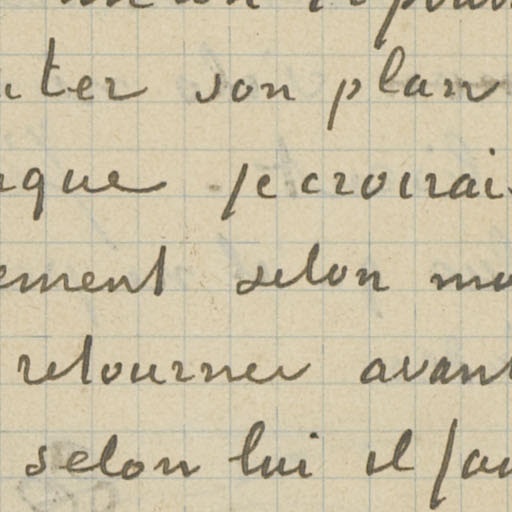 uter son plan
que je croirai
ement selon mo
retourner avant
selon lui il fau